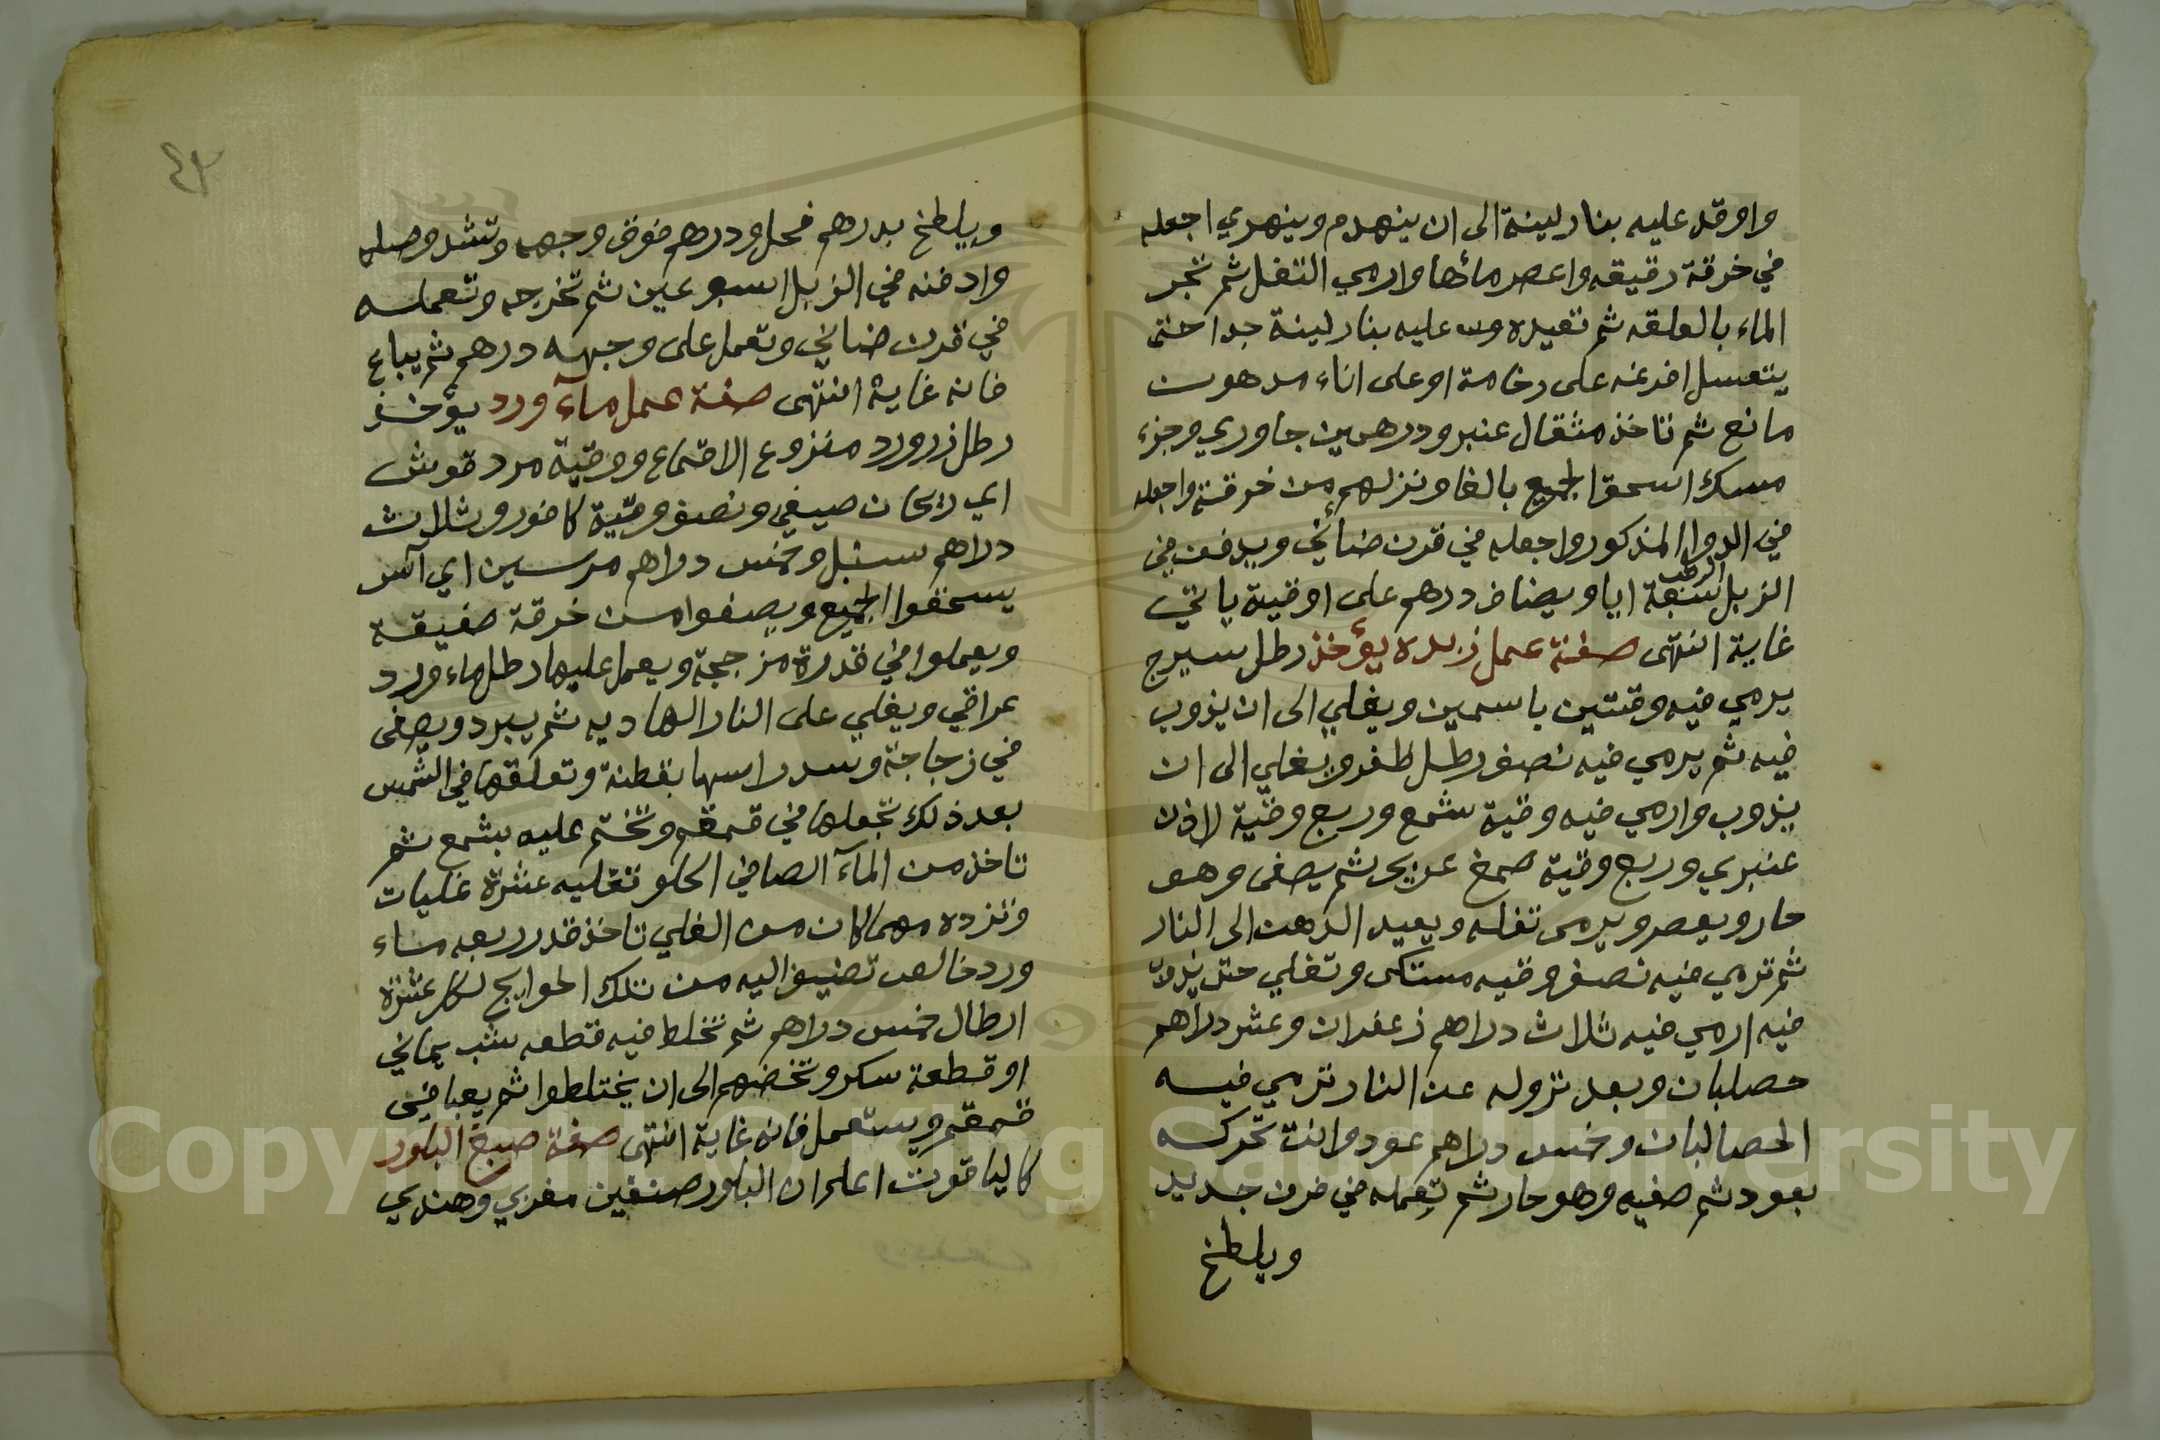 واوقد عليه بنار لينة الى ان ينهدم وينهري اجعله
في خرقة رقيقه واعصر مائها وارمي التفل ثم تجر
الماء بالعلقه ثم تعيده وسه عليه بنار لينة جدا حتى
يتعسل افرغه على رخامة او على اناء مدهون
مانع ثم تاخذ مثقال عنبر ودرهمين جاوري وجزء
مسك اسحقوا الجميع بالغا ونزلهم من خرقة واجعله
في الدوا المذكور واجعله في قدن ضاني ويدفن في
الزبل الرطب سبعة ايا ويضاف درهم على اوقية ياتي
غاية انتهى صفة عمل زبده يؤخذ رطل سيرج
يرمي فيه وقتين ياسمين ويغلي الى ان يذوب
فيه ثم يرمي فيه نصف رطل ظفر ويغلي الى ان
يذوب وارمي فيه وقية شمع وربع وقية لاذن
عنبري وربع وقية صمغ عربي ثم يصفى وهو
حار ويعصر ويرمى تفله ويعيد الدهن الى النار
ثم ترمي فيه نصف وقيه مستكى وتغلي حتى
فيه ارمي فيه ثلاث دراهم زعفران وعشر دراهم
حصلبان وبعد نزوله عن النار ترمي فيه
الحصالبان وخمس دراهم عود وانت تحركه
بعود ثم صفيه وهو حار ثم تعمله في فرن جديد
ويلطخ
٤٣
ويلطخ بدرهم فحل ودرهم فوق وجهه وتشد وصله
وادفنه في الزبل اسبوعين ثم تخرجه وتعمله
في قدن ضاني وتعمل على وجهه درهم ثم يباع
فانه غاية انتهى صفة عمل مآء ورد يؤخذ
رطل زرورد منزوع الاقماع ووقية مردقوش
اي ريحان صيفي ونصف وقية كافور وثلاث
دراهم سنبل وخمس دراهم مرسين اي آس
يسحقوا الجميع ويصفوا من خرقة صفيقة
ويعملوا في قدرة مزججة ويعمل عليها رطل ماء ورد
عراقي ويغلي على النار الهاديه ثم يبرد ويصفى
في زجاجة وسد راسها بقطنة وتعلقها في الشمس
بعد ذلك تجعلها في قمقم وتختم عليه بشمع ثم
تاخذ من المآء الصافي الحلو تغليه عشرة غليات
وتزده مهما كان من الغلي تاخذ قدر ربعه ماء
ورد خالص تضيف اليه من تلك الحوايج لكل عشرة
ارطال خمس دراهم ثم تخلط فيه قطعه شب يماني
او قطعة سكر وتخضهم الى ان يختلطوا ثم يعبا في
قمقم ويستعمل فانه غاية انتهى صفة صبغ البلور
كالياقوت اعلم ان البلور صنفين مغربي وهندي
Copyright © King Saud University